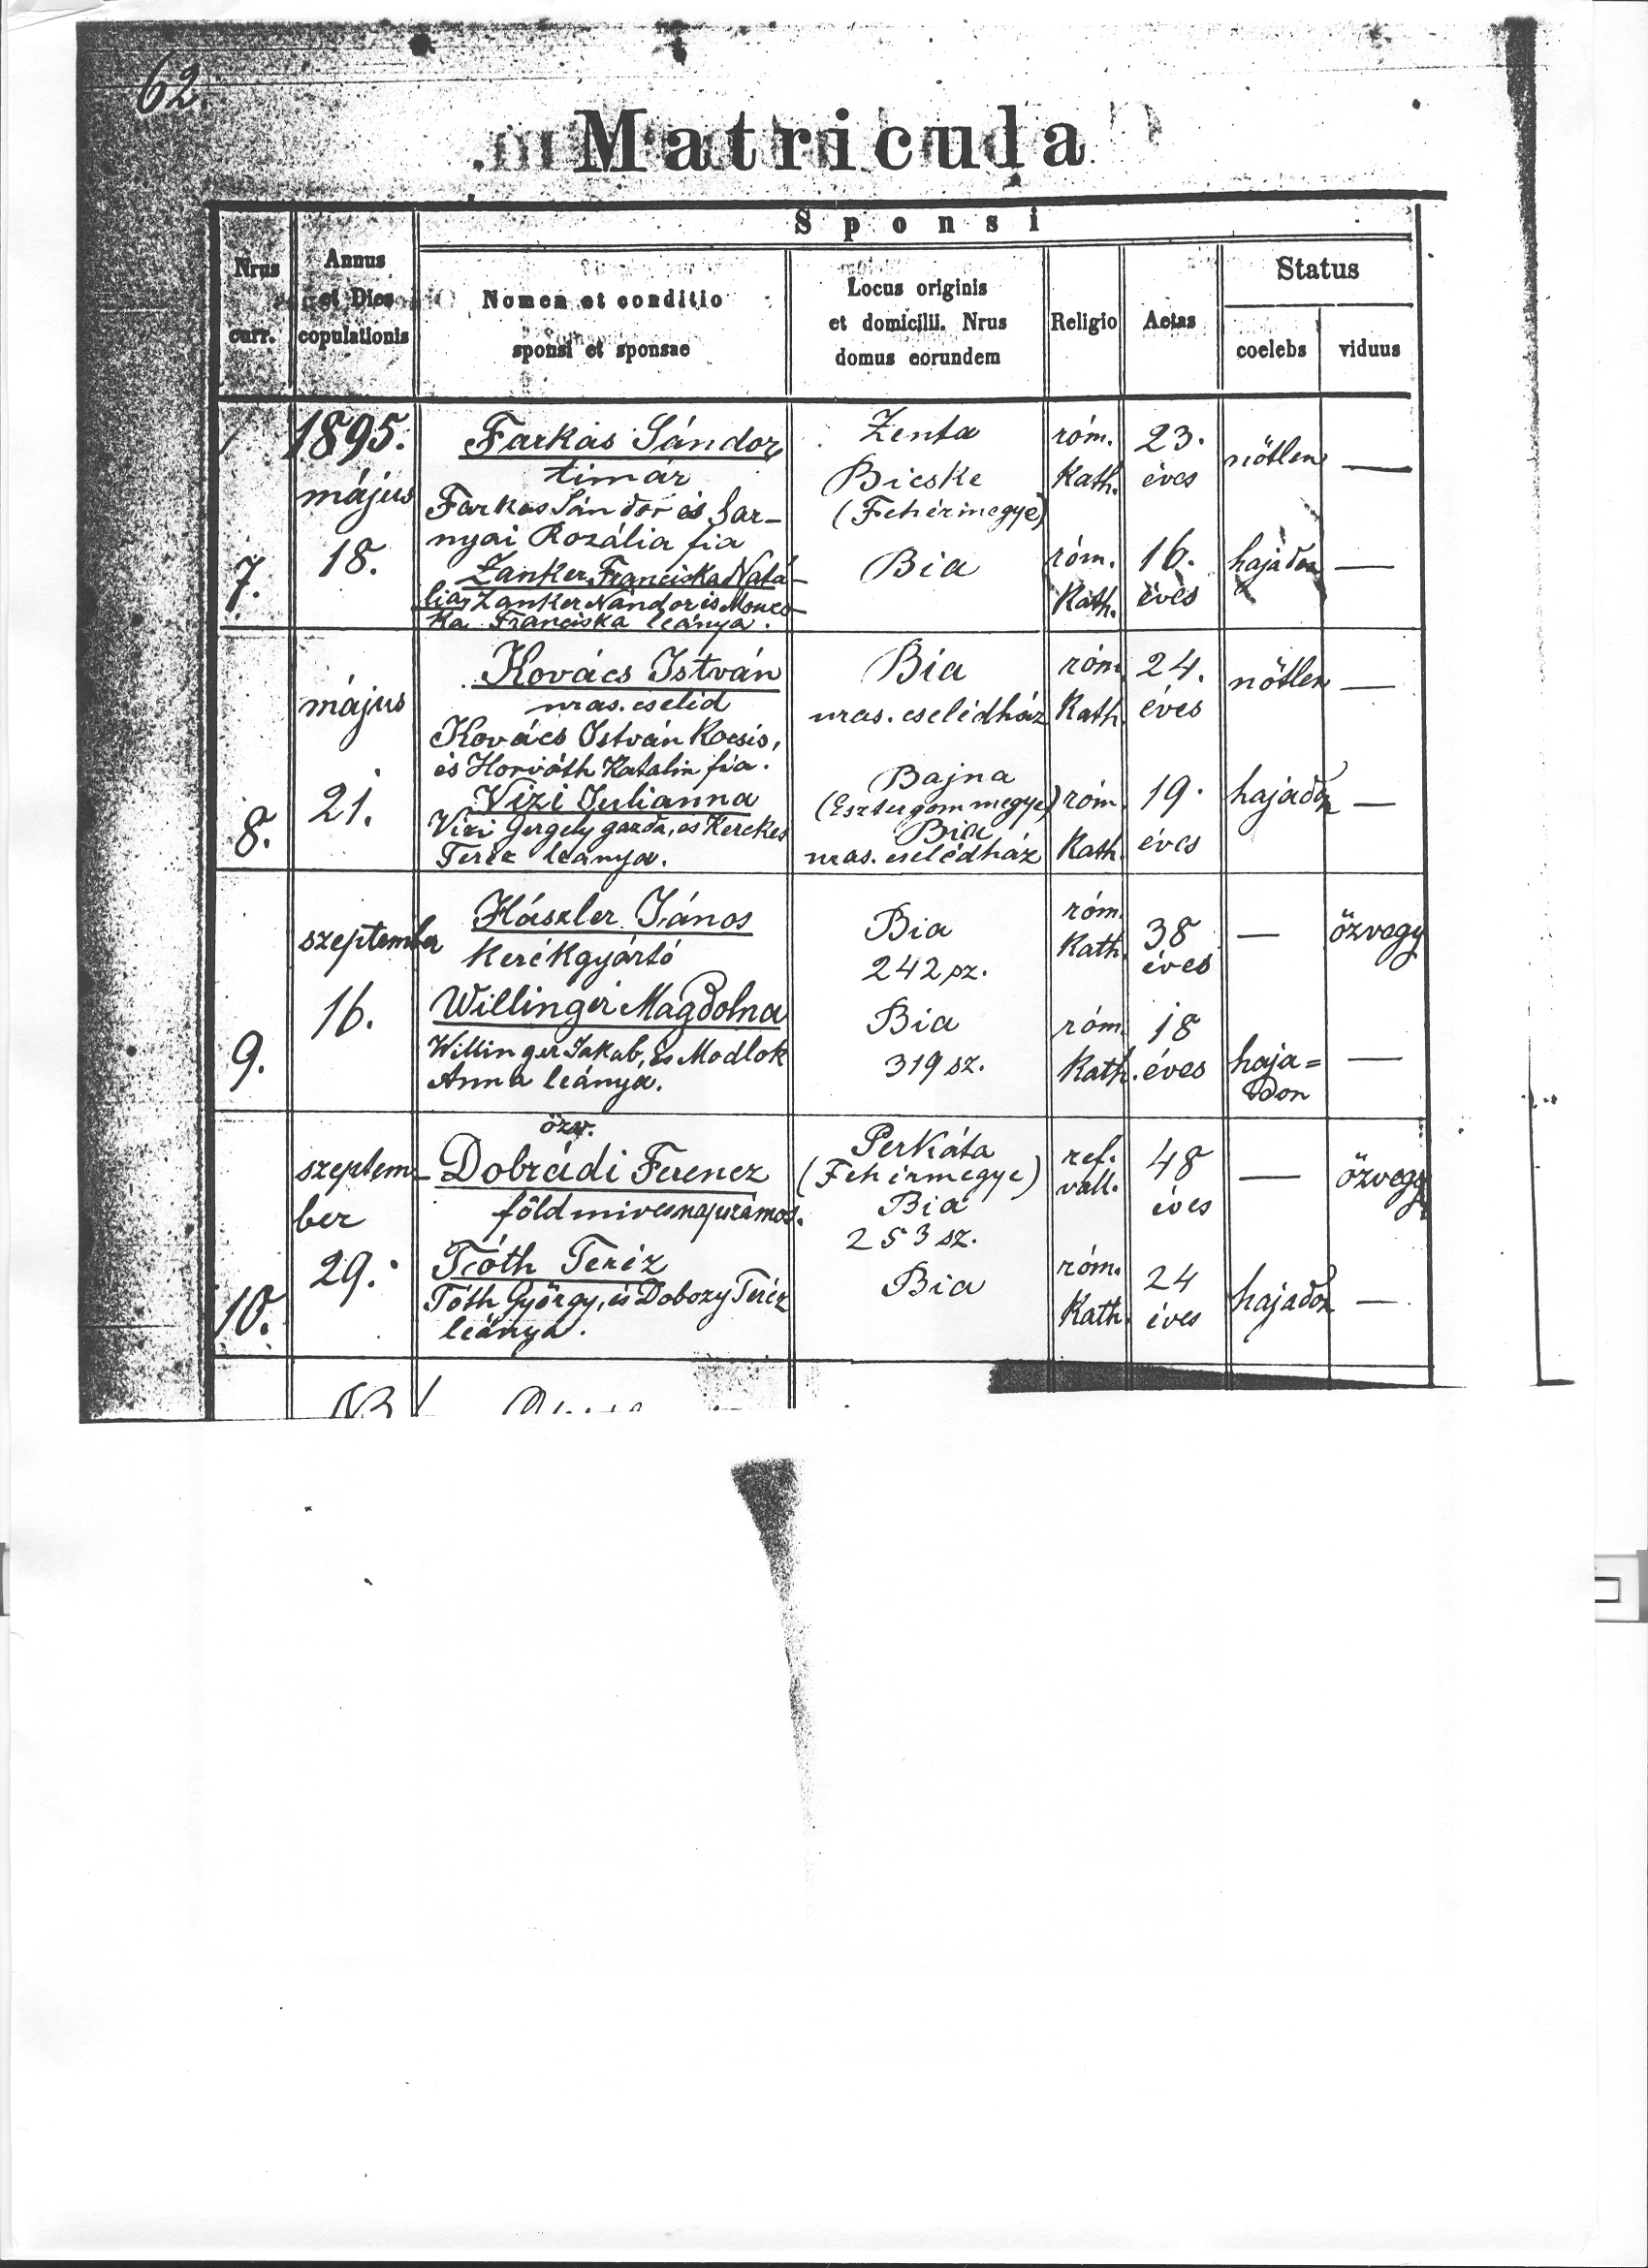 62.
Matricula
Sponsi
Nrus
curr.
Annus
et Dies
copulationis
Nomen et conditio
sponsi et sponsae
Locus originis
et domicilii. Nrus
domus eorundem
Religio
Aetas
Status
coelebs
viduus
7.
1895.
május
18.
Farkas Sándor
timár
Farkas Sándor és Sar-
nyai Rozália fia
Zanker Franciska Natá-
lia, Zanker Nándor és
ka Franciska leánya.
Zenta
Bicske
(Fehérmegye)
Bia
róm.
Kath.
róm.
Kath.
23.
éves
16.
éves
nőtlen
hajadon
—
—
8.
május
21.
Kovács István
uras. cseléd
Kovács István Kocsis,
és Horváth Katalin fia.
Vizi Julianna
Vizi Gergely gazda, és Kerekes
Teréz leánya.
Bia
uras. cselédház
Bajna
(Esztergommegye)
Bia
uras. cselédház
róm.
Kath.
róm.
Kath.
24.
éves
19.
éves
nőtlen
hajadon
—
—
9.
szeptember
16.
Hászler János
Kerékgyártó
Willinger Magdolna
Willinger Jakab, és Modlok
Anna leánya.
Bia
242 sz.
Bia
319 sz.
róm.
Kath.
róm.
Kath.
38
éves
18
éves
—
haja=
don
özvegy
—
10.
szeptem-
ber
29.
özv.
Dobrádi Ferencz
földmives
Tóth Teréz
Tóth György, és Dobozy Teréz
leánya.
Perkáta
(Fehérmegye)
Bia
253 sz.
Bia
ref.
vall.
róm.
Kath.
48
éves
24
éves
—
hajadon
özvegy
—